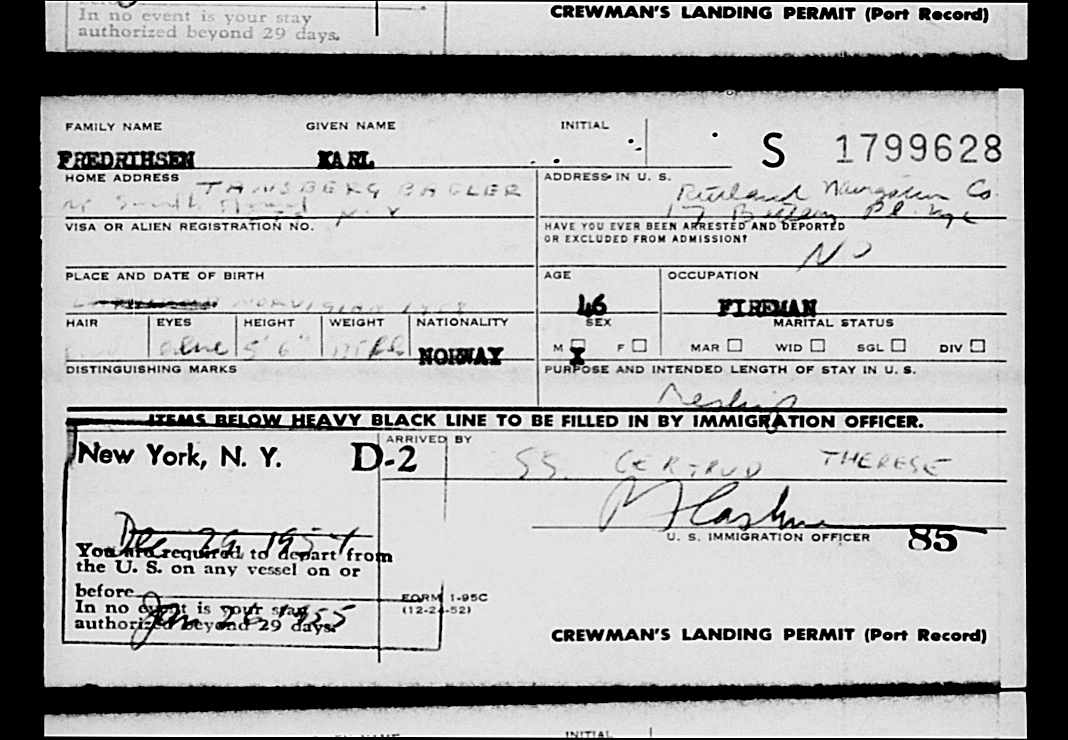 In no event is your stay
authorized beyond 29 days.
CREWMAN'S LANDING PERMIT (Port Record)
FAMILY NAME GIVEN NAME INITIAL
FREDRIHSEN KARL S 1799628
HOME ADDRESS ADDRESS IN U. S.
TANSBERG Co.
N.Y Pl. nyc
VISA OR ALIEN REGISTRATION NO. HAVE YOU EVER BEEN ARRESTED AND DEPORTED
OR EXCLUDED FROM ADMISSION?
NO
PLACE AND DATE OF BIRTH AGE OCCUPATION
46 FIREMAN
HAIR EYES HEIGHT WEIGHT NATIONALITY SEX MARITAL STATUS
Blue 5' 6" NORWAY M X F MAR WID SGL DIV
DISTINGUISHING MARKS PURPOSE AND INTENDED LENGTH OF STAY IN U. S.
Reship
ITEMS BELOW HEAVY BLACK LINE TO BE FILLED IN BY IMMIGRATION OFFICER.
New York, N. Y. D-2 ARRIVED BY
SS. GERTRUD THERESE
Dec 29 1954
U. S. IMMIGRATION OFFICER 85
You are required to depart from
the U. S. on any vessel on or
before
FORM I-95C
In no event is your stay
(12-24-52)
Jan 26 1955
authorized beyond 29 days.
CREWMAN'S LANDING PERMIT (Port Record)
GIVEN NAME INITIAL